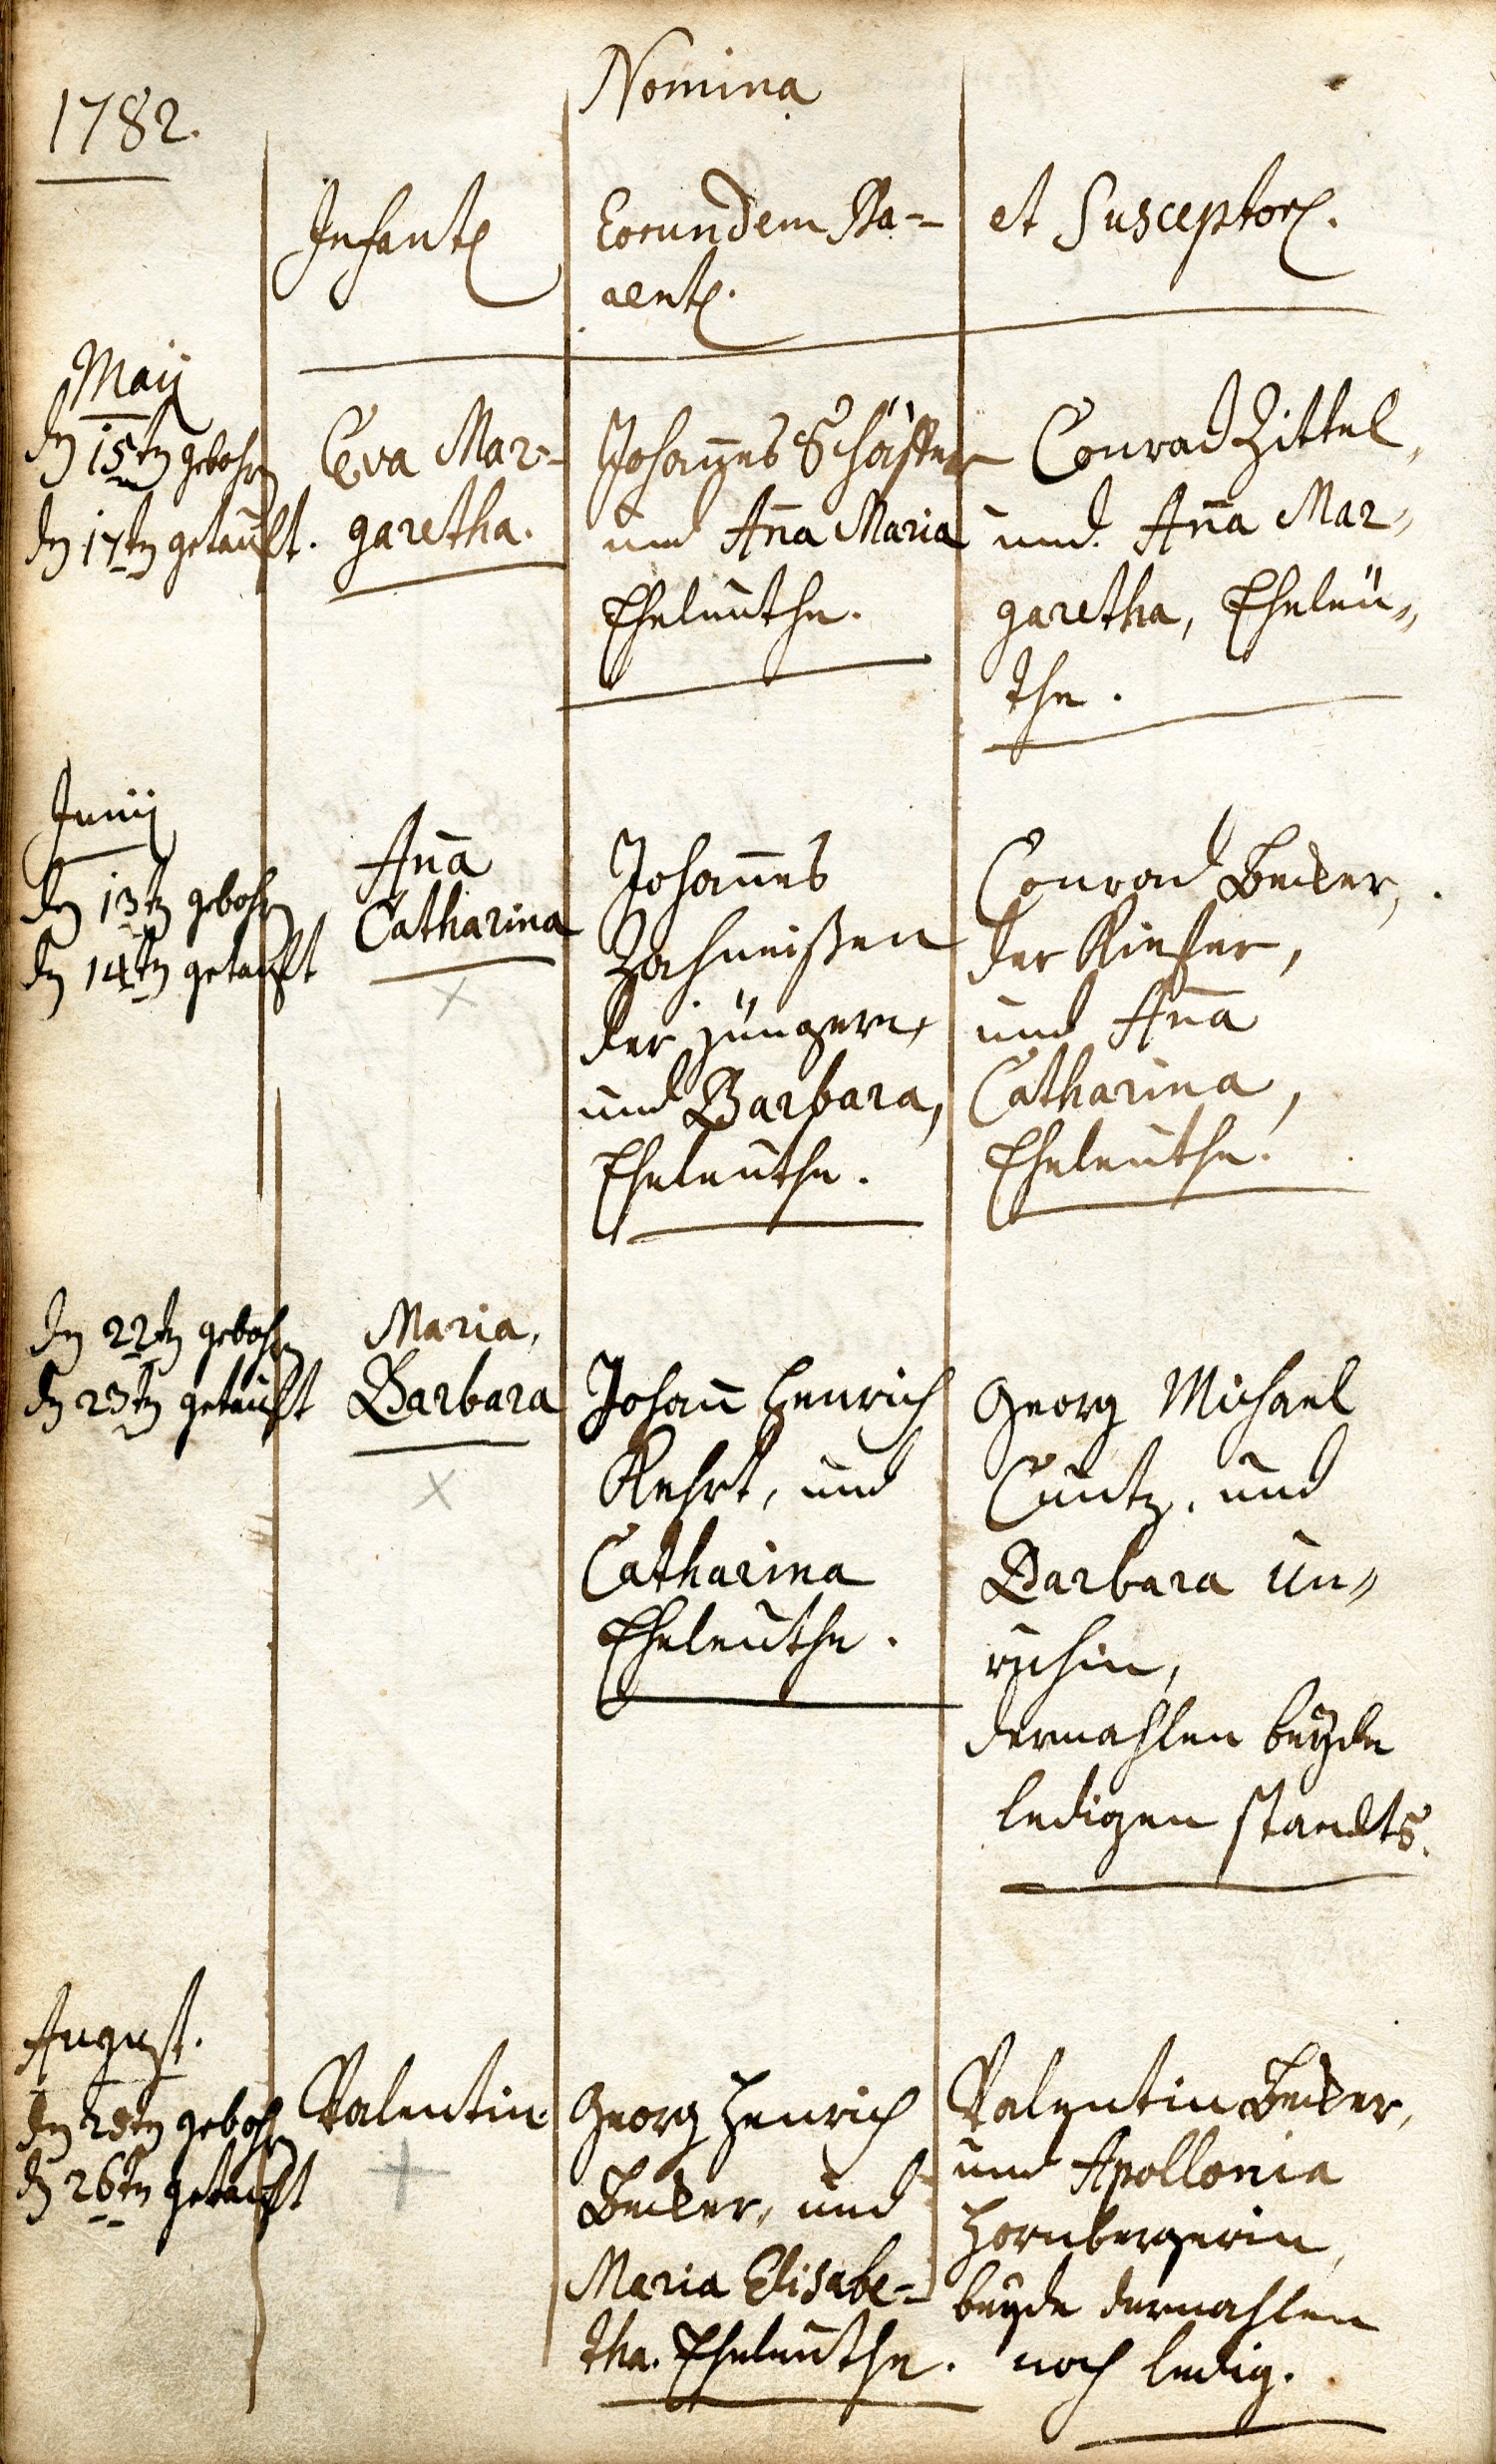 1782.
Nomina
Infantū
Eorundem Pa=
rentū.
et Susceptorū.
Maij
dn 15tn gebohrn
dn 17tn getauft.
Eva Mar=
garetha.
Johañes Schäffer
und Aña Maria
Eheleuthe.
Conrad Zittel,
und Aña Mar„
garetha, Eheleü„
the.
Junij
dn 13tn gebohrn
dn 14tn getauft
Aña
Catharina
Johañes
der jüngere,
und Barbara,
Eheleuthe.
Conrad Becker,
der Kiefer,
und Aña
Catharina,
Eheleuthe.
dn 22tn gebohrn
dn 23tn getauft
Maria,
Barbara
Johañ Henrich
Kehrt, und
Catharina
Eheleuthe.
Georg Michael
Cuntz, und
Barbara Un„
dermahlen beyde
ledigen standts.
August.
dn 25tn gebohrn
dn 26tn getauft
Valentin.
Georg Henrich
Becker, und
Maria Elisabe=
tha. Eheleuthe.
Valentin Becker,
und Apollonia
Hornbergerin,
beyde dermahlen
noch ledig.